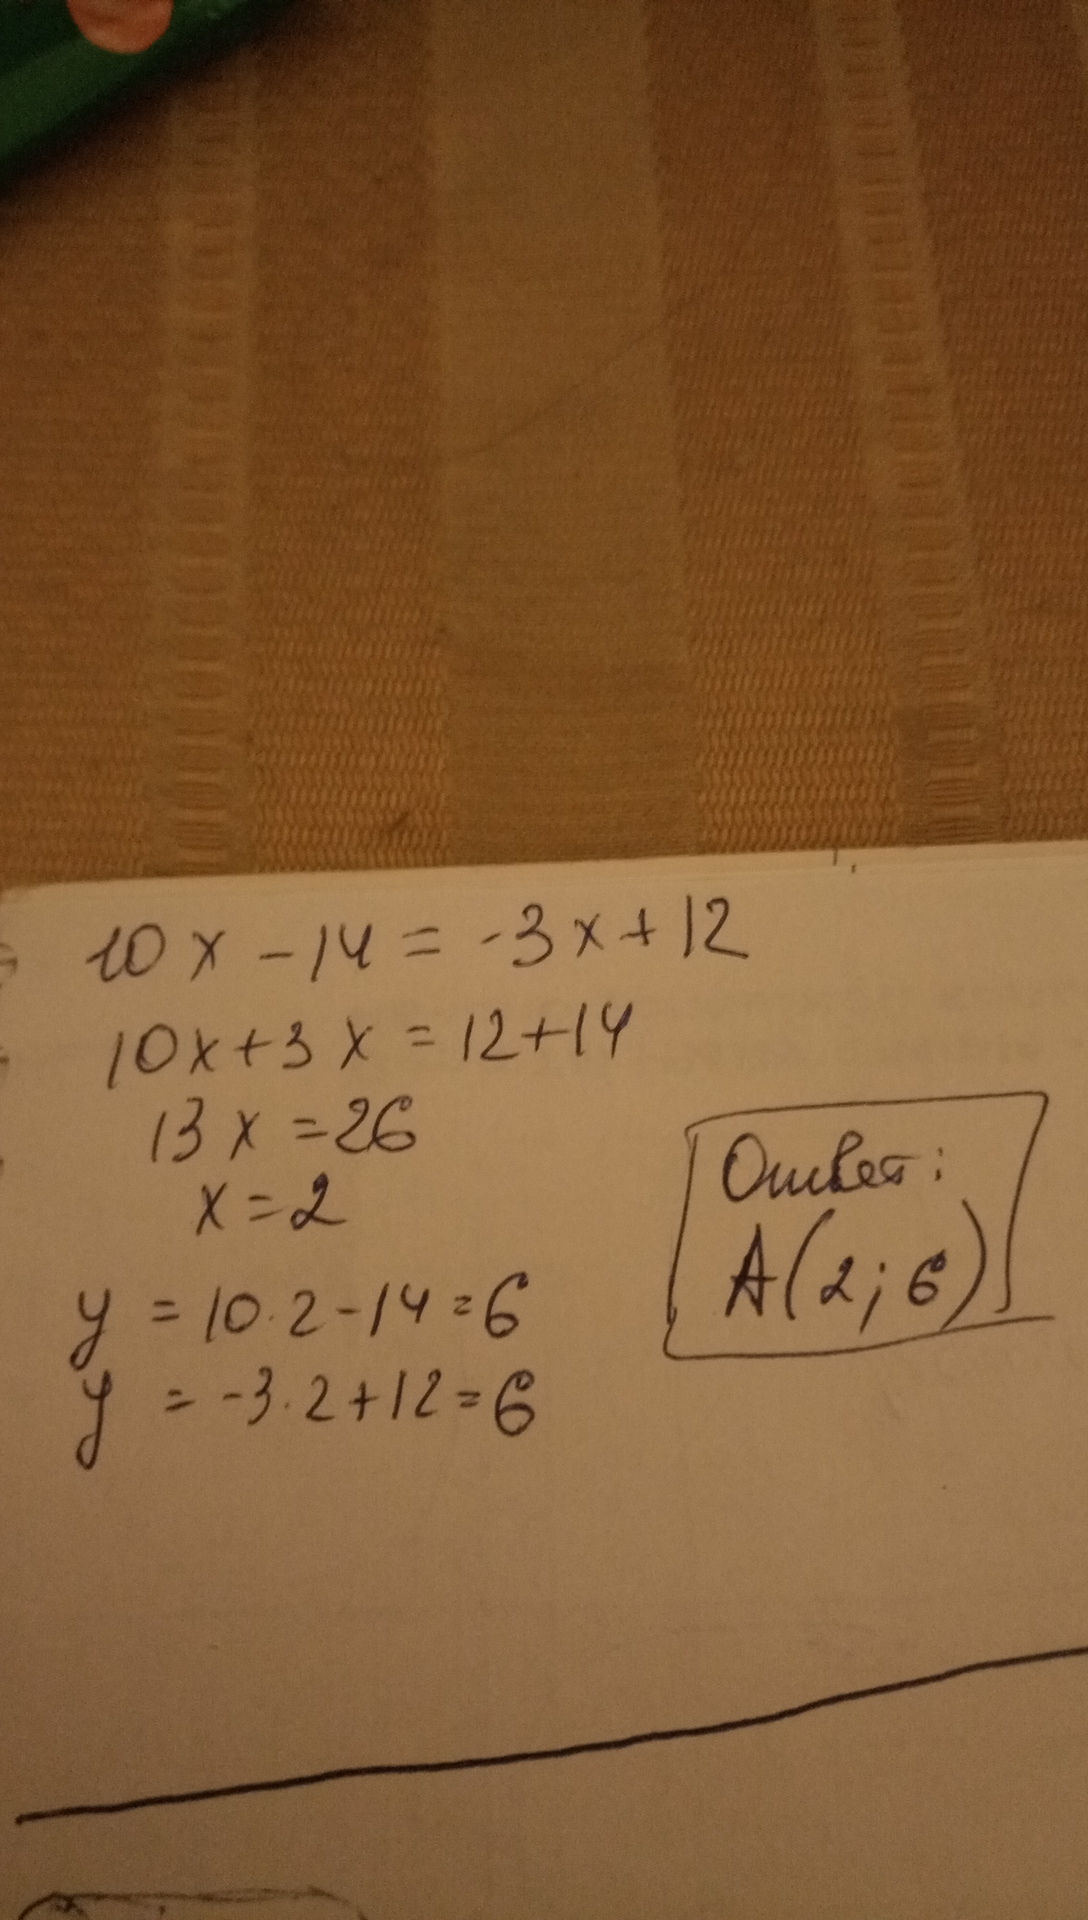 10x - 14 = -3x + 12
10x + 3x = 12 + 14
13x = 26
x = 2
y = 10·2 - 14 = 6
y = -3·2 + 12 = 6
Ответ:
A(2; 6)